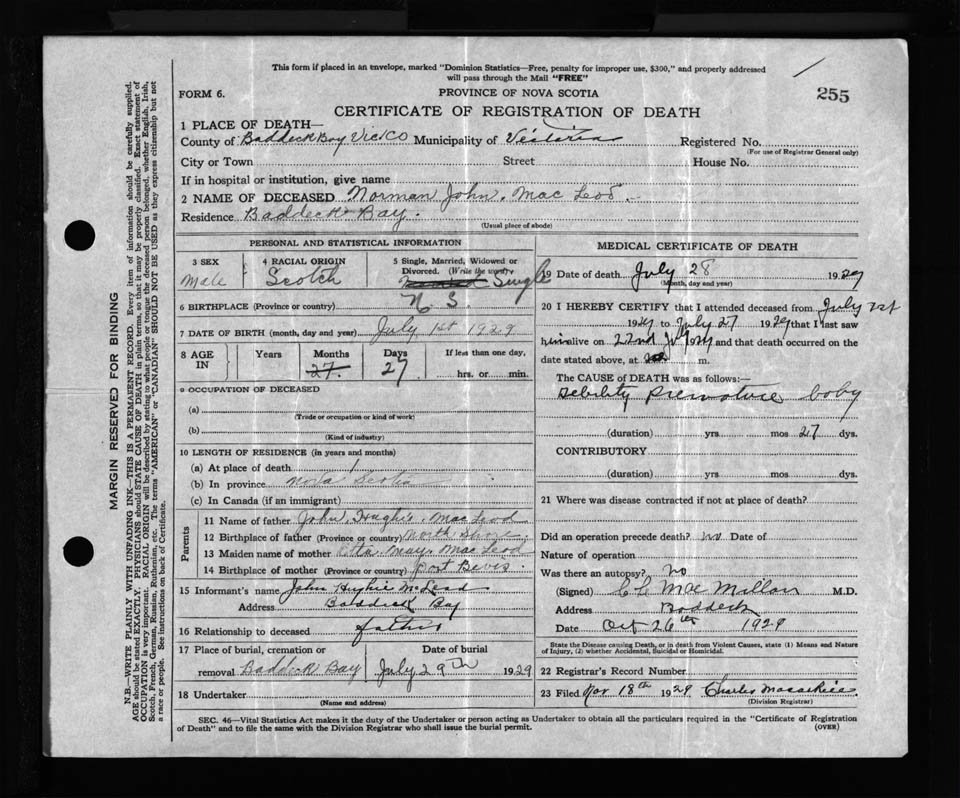 This form if placed in an envelope, marked "Dominion Statistics—Free, penalty for improper use, $300," and properly addressed
will pass through the Mail "FREE"
FORM 6. PROVINCE OF NOVA SCOTIA 255
CERTIFICATE OF REGISTRATION OF DEATH
1 PLACE OF DEATH—
County of Baddeck Bay Vic/CO Municipality of Victoria Registered No.
(For use of Registrar General only)
City or Town Street House No.
If in hospital or institution, give name
2 NAME OF DECEASED Norman John. Mac Leod.
Residence Baddeck Bay.
(Usual place of abode)
PERSONAL AND STATISTICAL INFORMATION
3 SEX 4 RACIAL ORIGIN 5 Single, Married, Widowed or
Divorced. (Write the word)
Male Scotch Single
6 BIRTHPLACE (Province or country) N S
7 DATE OF BIRTH (month, day and year) July 1st 1929
8 AGE IN Years Months Days If less than one day,
27. 27 hrs. or min.
9 OCCUPATION OF DECEASED
(a)
(Trade or occupation or kind of work)
(b)
(Kind of industry)
10 LENGTH OF RESIDENCE (in years and months)
(a) At place of death 1
(b) In province Nova Scotia
(c) In Canada (if an immigrant)
Parents
11 Name of father John Hughie. Mac Leod
12 Birthplace of father (Province or country) North Shore
13 Maiden name of mother Etta May. Mac Leod
14 Birthplace of mother (Province or country) Port Bevis.
15 Informant's name John Hughie McLeod
Address Baddeck Bay
16 Relationship to deceased father
17 Place of burial, cremation or Date of burial
removal Baddeck Bay July 29th 1929
18 Undertaker
(Name and address)
MEDICAL CERTIFICATE OF DEATH
19 Date of death July 28 1929
(Month, day and year)
20 I HEREBY CERTIFY that I attended deceased from July 1st
1929 to July 27 1929 that I last saw
him alive on 22nd July 1929 and that death occurred on the
date stated above, at m.
The CAUSE OF DEATH was as follows:—
Debility premature baby
(duration) yrs mos 27 dys.
CONTRIBUTORY
(duration) yrs mos dys.
21 Where was disease contracted if not at place of death?
Did an operation precede death? no Date of
Nature of operation
Was there an autopsy? no
(Signed) C C Mac Millan M.D.
Address Baddeck
Date Oct 26th 1929
State the Disease causing Death, or in death from Violent Causes, state (1) Means and Nature
of Injury, (2) whether Accidental, Suicidal or Homicidal.
22 Registrar's Record Number
23 Filed Nov 18th 1929 Charles
(Division Registrar)
SEC. 46—Vital Statistics Act makes it the duty of the Undertaker or person acting as Undertaker to obtain all the particulars required in the "Certificate of Registration
of Death" and to file the same with the Division Registrar who shall issue the burial permit. (OVER)
MARGIN RESERVED FOR BINDING
N.B.—WRITE PLAINLY WITH UNFADING INK—THIS IS A PERMANENT RECORD. Every item of information should be carefully supplied.
AGE should be stated EXACTLY. PHYSICIANS should STATE CAUSE OF DEATH in plain terms, so that it may be properly classified. Exact statement of
OCCUPATION is very important. RACIAL ORIGIN will be described by stating to what people or tongue the deceased person belonged, whether English, Irish,
Scotch, French, German, Russian, Ruthenian, etc. The terms "AMERICAN" or "CANADIAN" SHOULD NOT BE USED as they express citizenship but not
a race or people. See instructions on back of Certificate.